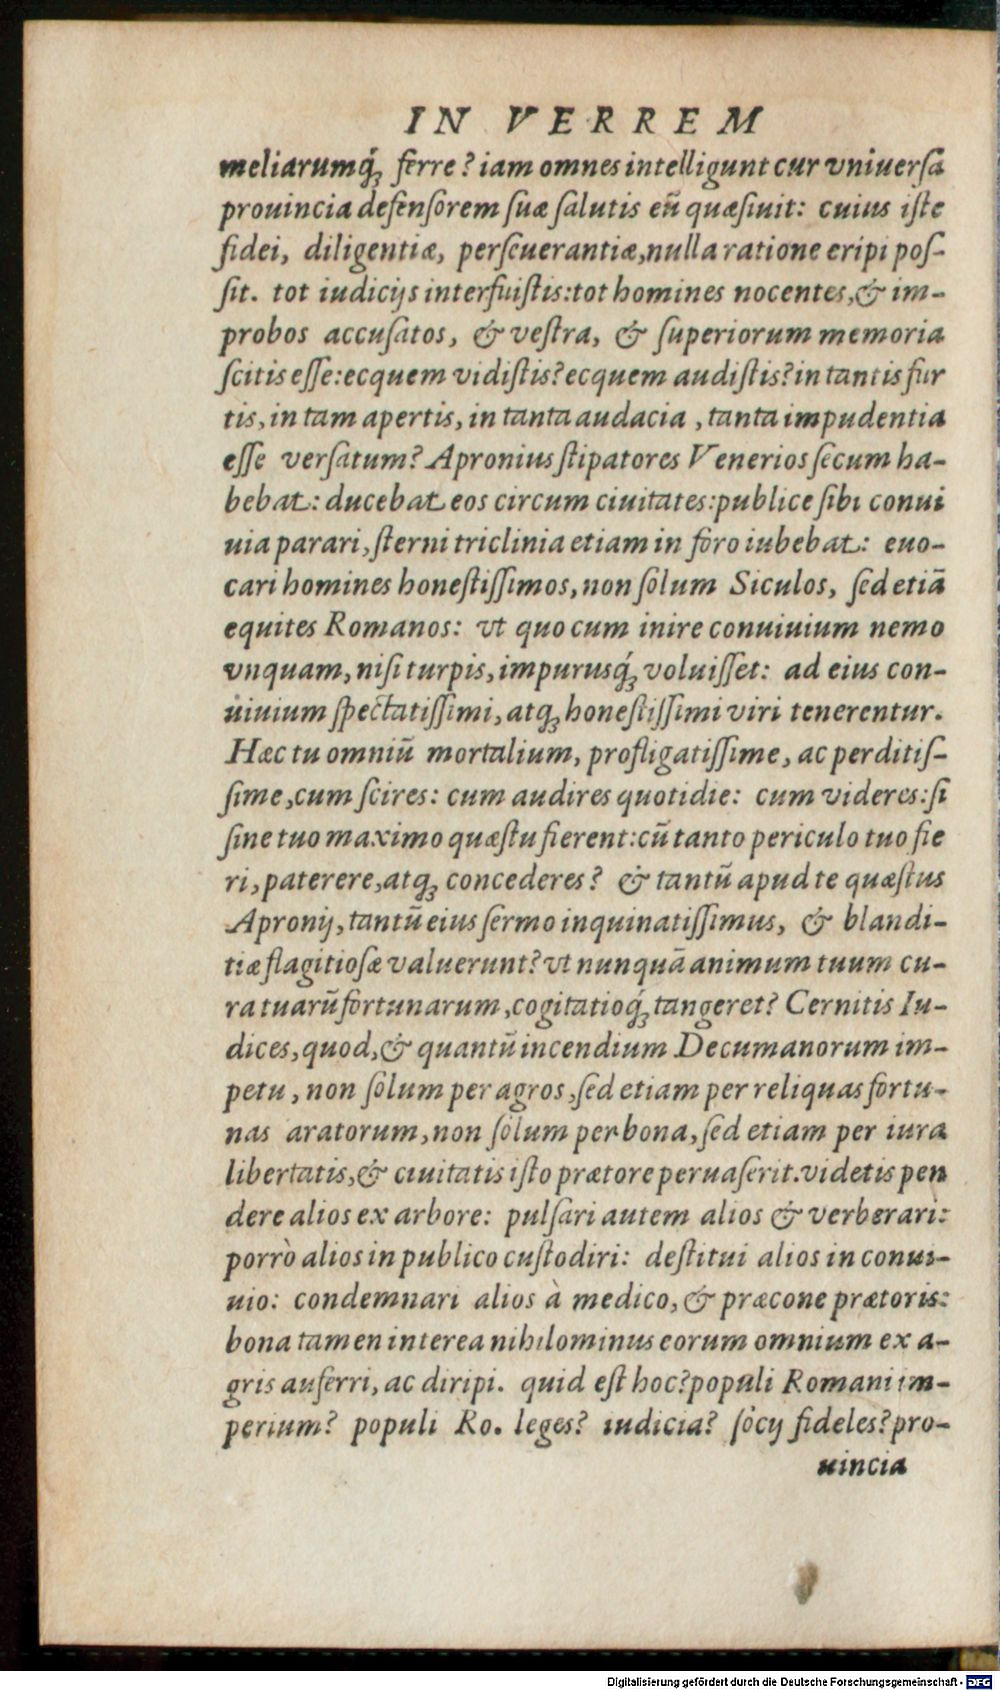 IN VERREM
meliarumq́ꝫ ferre? iam omnes intelligunt cur vniuersa
prouincia defensorem suæ salutis eū quæsiuit: cuius iste
fidei, diligentiæ, perseuerantiæ, nulla ratione eripi pos-
sit. tot iudicijs interfuistis: tot homines nocentes, & im-
probos accusatos, & vestra, & superiorum memoria
scitis esse: ecquem vidistis? ecquem audistis? in tantis fur
tis, in tam apertis, in tanta audacia, tanta impudentia
esse versatum? Apronius stipatores Venerios secum ha-
bebat: ducebat eos circum ciuitates: publice sibi conui
uia parari, sterni triclinia etiam in foro iubebat: euo-
cari homines honestissimos, non solum Siculos, sed etiā
equites Romanos: vt quo cum inire conuiuium nemo
vnquam, nisi turpis, impurusq́ꝫ voluisset: ad eius con-
uiuium spectatissimi, atqꝫ honestissimi viri tenerentur.
Hæc tu omniū mortalium, profligatissime, ac perditis-
sime, cum scires: cum audires quotidie: cum videres: si
sine tuo maximo quæstu fierent: cū tanto periculo tuo fie
ri, paterere, atqꝫ concederes? & tantū apud te quæstus
Apronij, tantū eius sermo inquinatissimus, & blandi-
tiæ flagitiosæ valuerunt? vt nunquā animum tuum cu-
ra tuarū fortunarum, cogitatioq́ꝫ tangeret? Cernitis Iu-
dices, quod, & quantū incendium Decumanorum im-
petu, non solum per agros, sed etiam per reliquas fortu-
nas aratorum, non solum per bona, sed etiam per iura
libertatis, & ciuitatis isto prætore peruaserit. videtis pen
dere alios ex arbore: pulsari autem alios & verberari:
porrò alios in publico custodiri: destitui alios in conui-
uio: condemnari alios à medico, & præcone prætoris:
bona tamen interea nihilominus eorum omnium ex a-
gris auferri, ac diripi. quid est hoc? populi Romani im-
perium? populi Ro. leges? iudicia? socij fideles? pro-
uincia
Digitalisierung gefördert durch die Deutsche Forschungsgemeinschaft - DFG